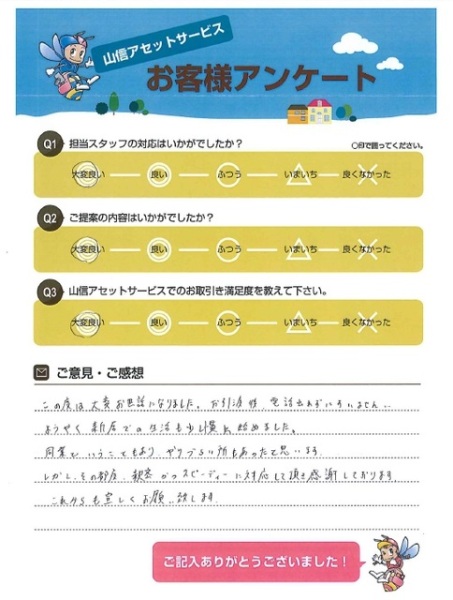 山信アセットサービス
お客様アンケート
Q1 担当スタッフの対応はいかがでしたか？
○印で囲ってください。
大変良い 良い ふつう いまいち 良くなかった
Q2 ご提案の内容はいかがでしたか？
大変良い 良い ふつう いまいち 良くなかった
Q3 山信アセットサービスでのお取引き満足度を教えて下さい。
大変良い 良い ふつう いまいち 良くなかった
ご意見・ご感想
この度は大変お世話になりました。お引渡後、電話出れずにすいません。
ようやく新居での生活も少し慣れ始めました。
同業ということもあり、やりづらい所もあったと思います。
しかし、その都度、親密かつスピーディーに対応して頂き感謝しております。
これからも宜しくお願い致します。
ご記入ありがとうございました！